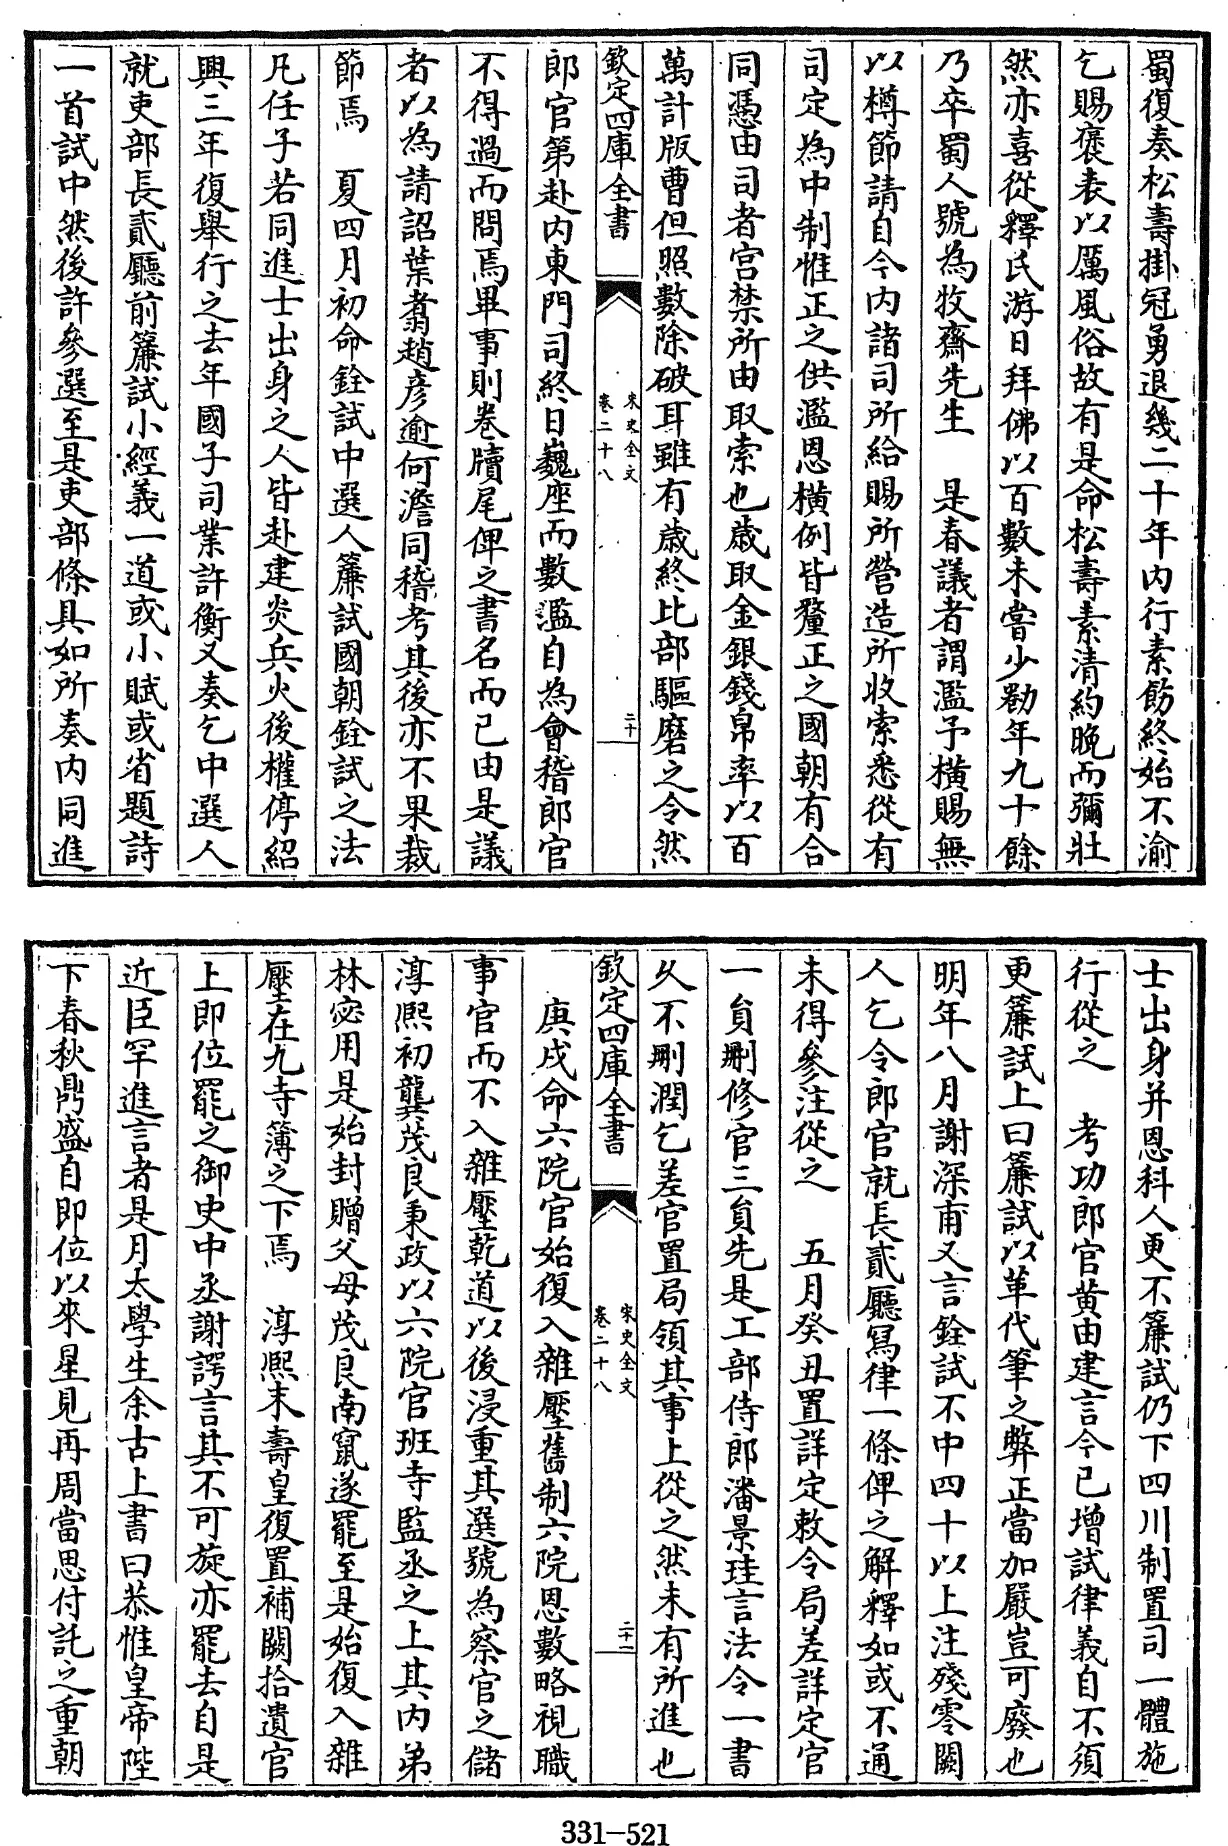 蜀復奏松壽掛冠勇退幾二十年内行素飭終始不渝
乞賜襃表以厲風俗故有是命松壽素清約晚而彌壯
然亦喜從釋氏游日拜佛以百數未嘗少勌年九十餘
乃卒蜀人號為牧齋先生　是春議者謂濫予橫賜無
以樽節請自今内諸司所給賜所營造所收索悉從有
司定為中制惟正之供濫恩橫例皆釐正之國朝有合
同憑由司者宫禁所由取索也歲取金銀錢帛率以百
萬計版曹但照數除破耳雖有歲終比部驅磨之令然
欽定四庫全書
宋史全文
卷二十八
二十
郎官第赴内東門司終日巍座而數濫自為會稽郎官
不得過而問焉畢事則卷牘尾俾之書名而已由是議
者以為請詔葉翥趙彦逾何澹同稽考其後亦不果裁
節焉　夏四月初命銓試中選人簾試國朝銓試之法
凡任子若同進士出身之人皆赴建炎兵火後權停紹
興三年復舉行之去年國子司業許衡又奏乞中選人
就吏部長貳廳前簾試小經義一道或小賦或省題詩
一首試中然後許參選至是吏部條具如所奏内同進
士出身并恩科人更不簾試仍下四川制置司一體施
行從之　考功郎官黄由建言今已增試律義自不須
更簾試上曰簾試以革代筆之弊正當加嚴豈可廢也
明年八月謝深甫又言銓試不中四十以上注殘零闕
人乞令郎官就長貳廳寫律一條俾之解釋如或不通
未得參注從之　五月癸丑置詳定敕令局差詳定官
一員刪修官三員先是工部侍郎潘景珪言法令一書
久不刪潤乞差官置局領其事上從之然未有所進也
欽定四庫全書
宋史全文
卷二十八
二十一
庚戌命六院官始復入雜壓舊制六院恩數略視職
事官而不入雜壓乾道以後浸重其選號為察官之儲
淳熙初龔茂良秉政以六院官班寺監丞之上其内弟
林宓用是始封贈父母茂良南竄遂罷至是始復入雜
壓在九寺簿之下焉　淳熙末壽皇復置補闕拾遺官
上即位罷之御史中丞謝諤言其不可旋亦罷去自是
近臣罕進言者是月太學生余古上書曰恭惟皇帝陛
下春秋鼎盛自即位以來星見再周當思付託之重朝
331-521